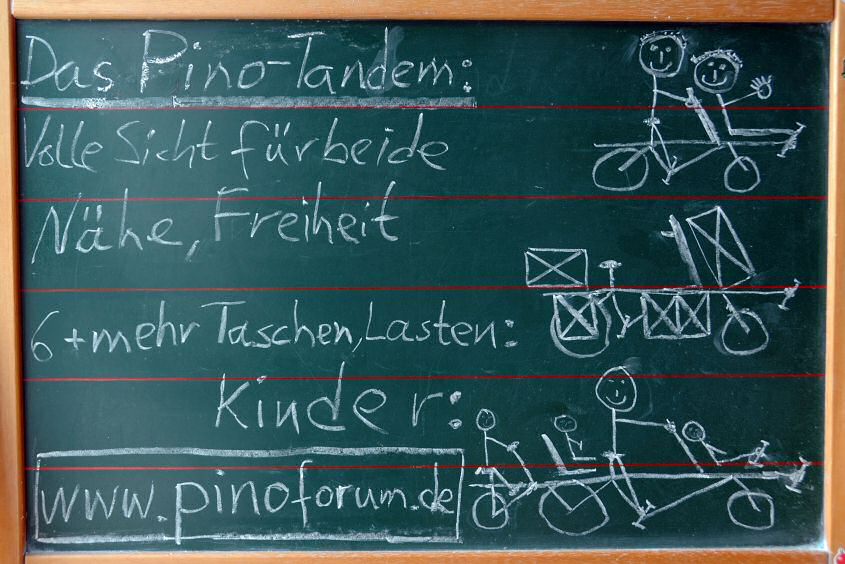 Das Pino-Tandem:
Volle Sicht für beide
Nähe, Freiheit
6 + mehr Taschen, Lasten:
Kinder:
www.pinoforum.de